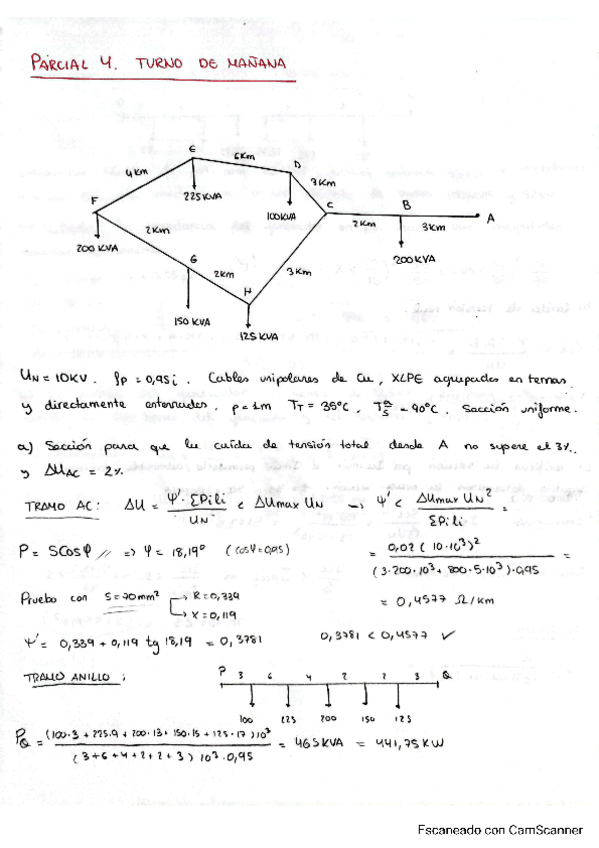 PARCIAL 4. TURNO DE MAÑANA
E
4Km
6Km
D
225KVA
3Km
F
100KVA
C
B
A
2Km
2Km
3Km
200 KVA
G
200KVA
2Km
3Km
H
150 KVA
125 KVA
UN = 10KV. fp = 0,95 i. Cables unipolares de Cu, XLPE agrupados en ternas
y directamente enterrados. p = 1m TT = 35°C, = 90°C. Sección uniforme.
a) Sección para que la caída de tensión total desde A no supere el 3%.
y ΔUAC = 2%.
TRAMO AC: ΔU = Ψ' · ΣPili / UN < ΔUmax UN → Ψ' < ΔUmax UN² / ΣPili =
P = S cos φ // => φ = 18,19° (cos φ = 0,95)
= 0,02 (10·10³)² / (3·200·10³ + 800·5·10³)·0,95 =
Pruebo con S = 70mm² → R = 0,339
→ X = 0,119
= 0,4577 Ω/km
Ψ' = 0,339 + 0,119 tg 18,19 = 0,3781
0,3781 < 0,4577 ✓
TRAMO ANILLO:
P 3 6 4 2 2 3 Q
100 225 200 150 125
PQ = (100·3 + 225·9 + 200·13 + 150·15 + 125·17)10³ / (3+6+4+2+2+3) 10³·0,95 = 465KVA = 441,75 KW
Escaneado con CamScanner